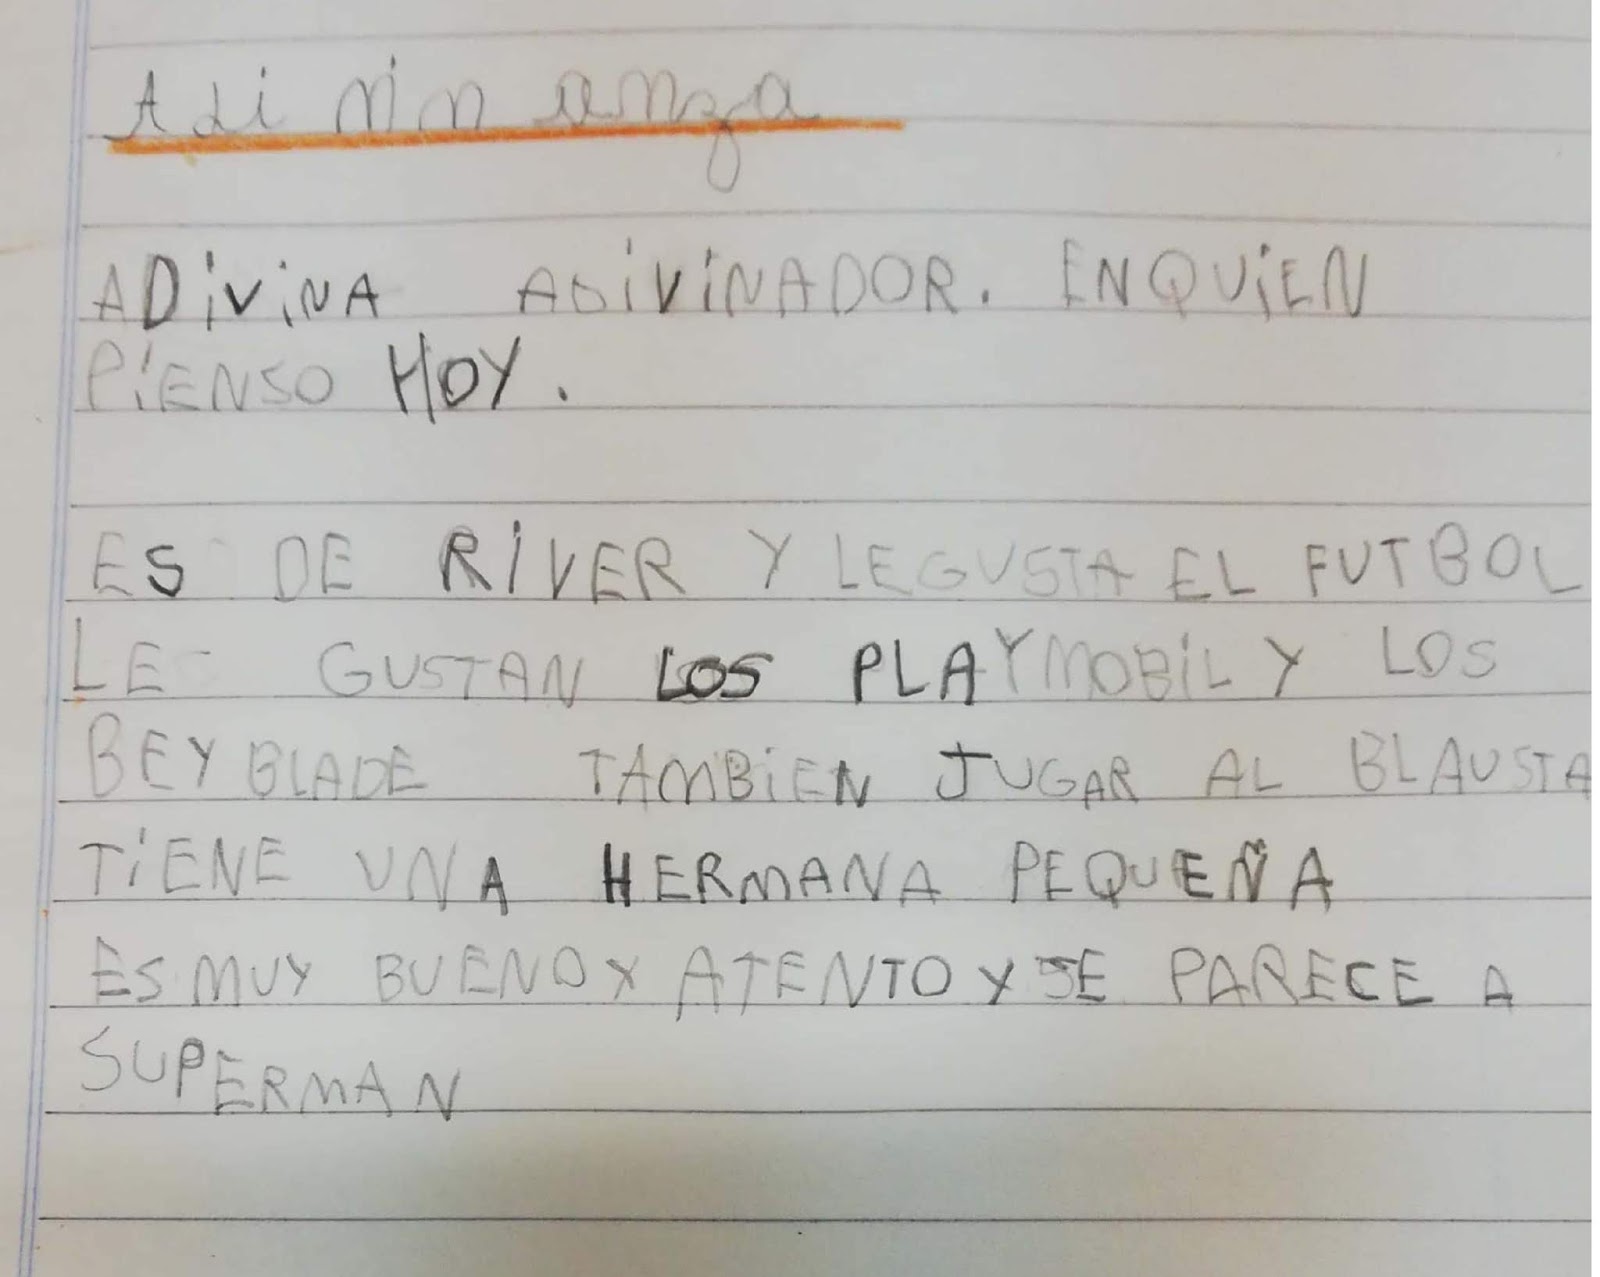 Adivinanza
ADiViNA ADiViNADOR. ENQUiEN
PiENSO HOY.
ES DE RiVER Y LEGUSTA EL FUTBOL
LE GUSTAN LOS PLAYMOBiL Y LOS
BEYBLADE TAMBiEN JUGAR AL BLAUSTA
TiENE UNA HERMANA PEQUEÑA
ES MUY BUENO Y ATENTO Y SE PARECE A
SUPERMAN